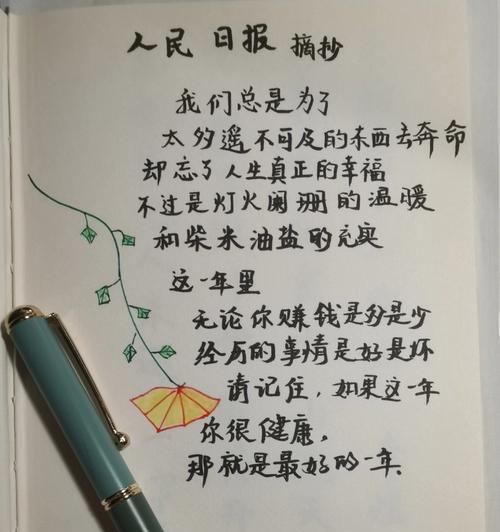 人民日报 摘抄
我们总是为了
太多遥不可及的东西去奔命
却忘了人生真正的幸福
不过是灯火阑珊的温暖
和柴米油盐的充实
这一年里
无论你赚钱是多是少
经历的事情是好是坏
请记住，如果这一年
你很健康，
那就是最好的一年.